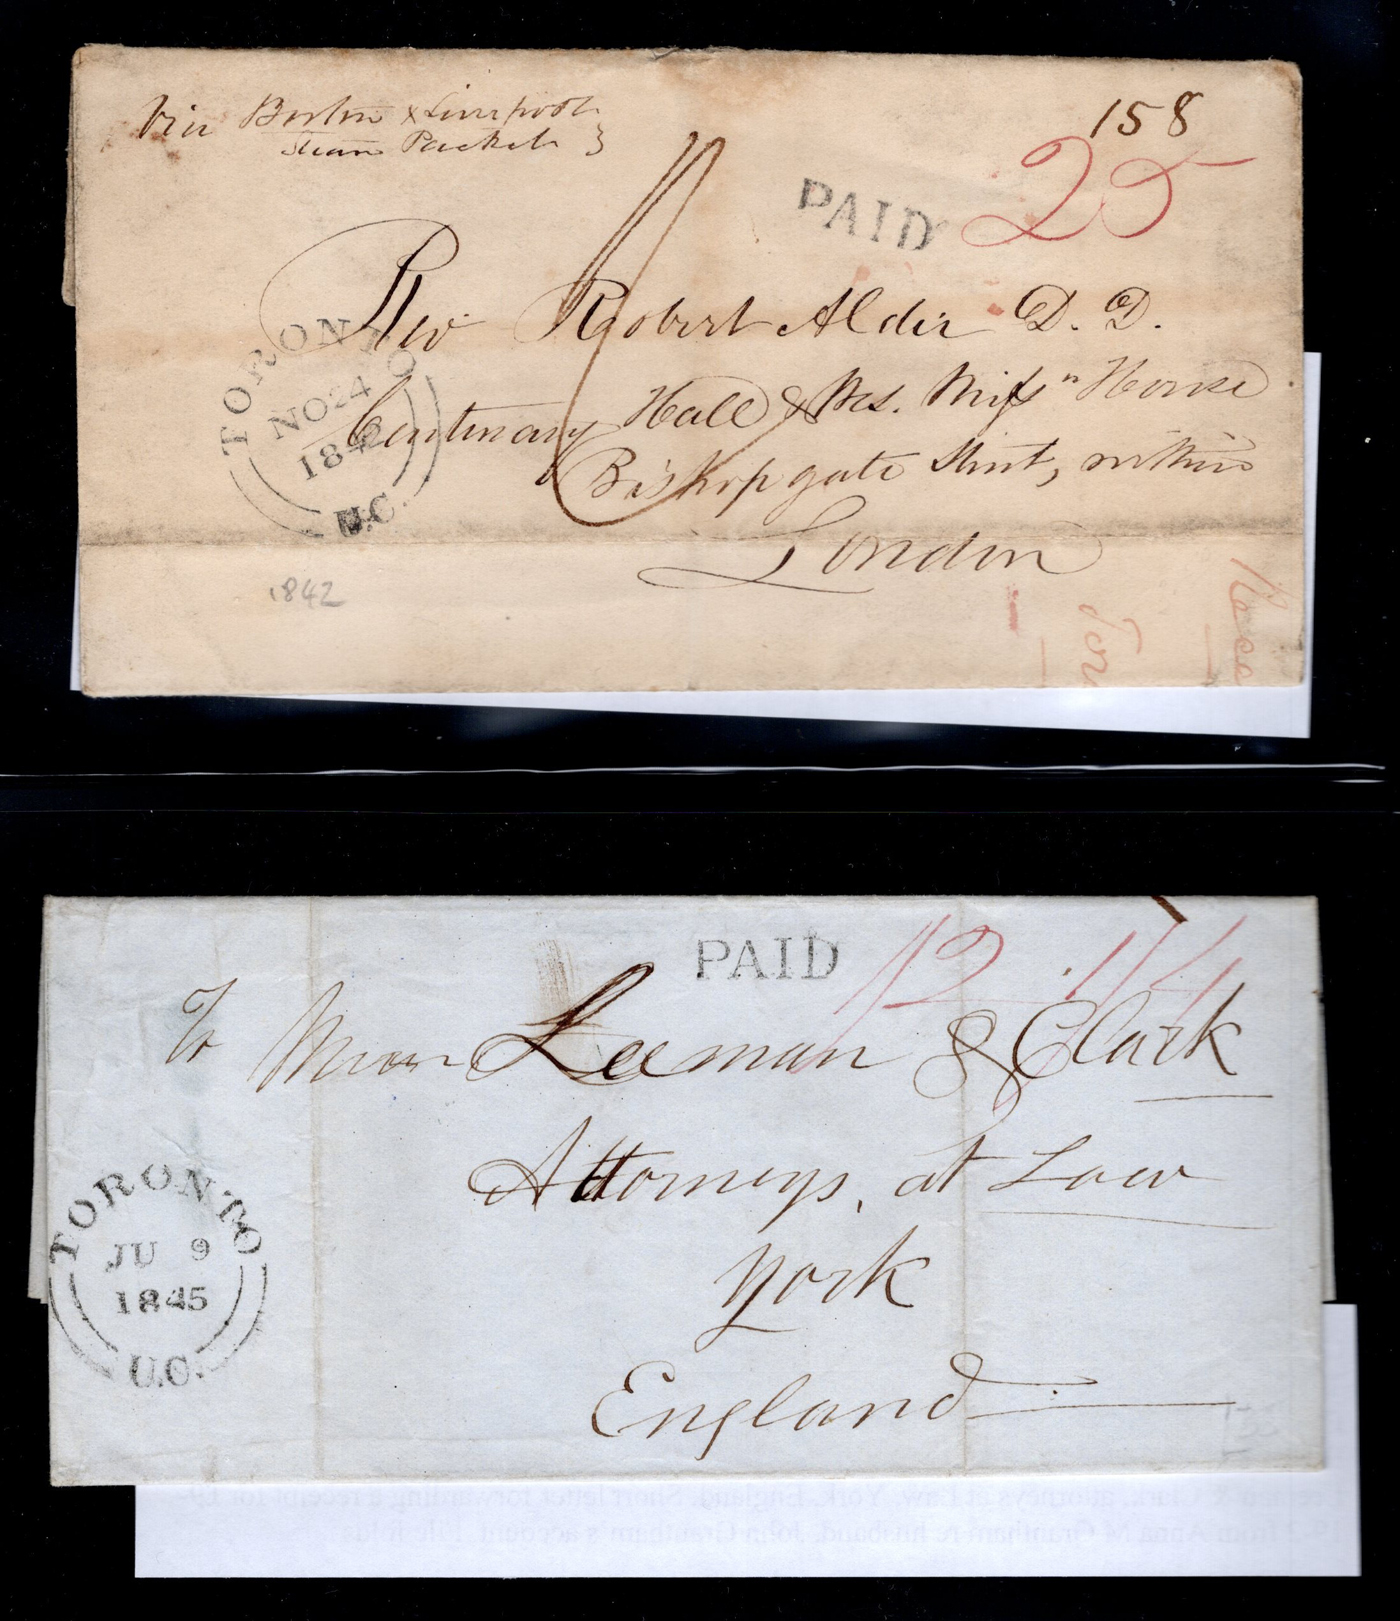 Via Boston & Liverpool
Steam Packet
158
PAID 25
Rev Robert Alder D. D.
Centenary Hall & Wes. Missn House
Bishopgate Street, within
London
TORONTO
NO 24
1842
U.C.
1842
PAID
1/2 1/4
To Messrs Leeman & Clark
Attorneys, at Law
York
England
TORONTO
JU 9
1845
U.C.
& Clark, attorneys at Law, York, England. Short letter forwarding a receipt for
from Anna M Grantham re husband, John Grantham's account.